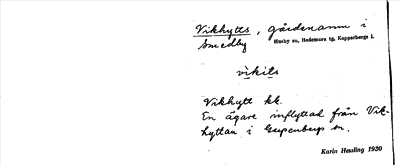 Vikhytts, gårdsnamn i
Smedby Husby sn, Hedemora tg, Kopparbergs l.
vikits
Vikhytt kk.
En ägare inflyttad från Vik-
hyttan i Grangärde sn.
Karin Hessling 1930